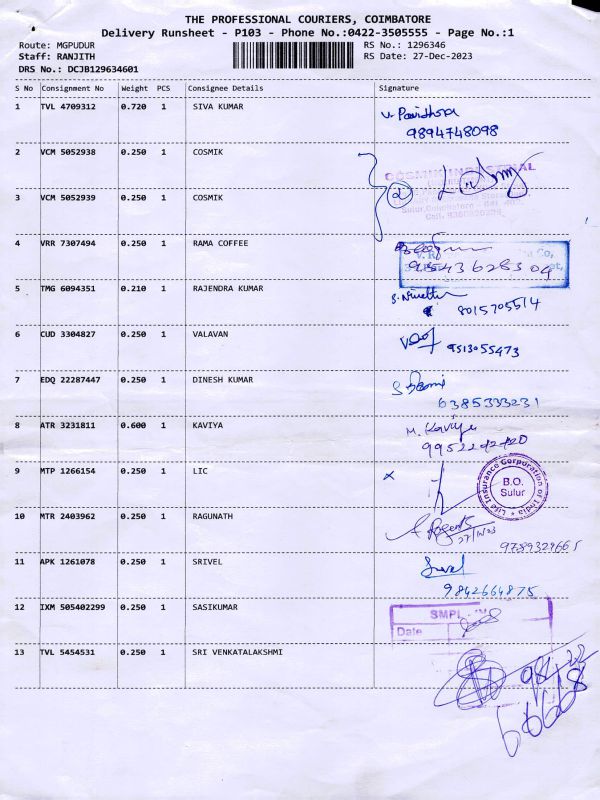 THE PROFESSIONAL COURIERS, COIMBATORE
Delivery Runsheet - P103 - Phone No.:0422-3505555 - Page No.:1
Route: MGPUDUR RS No.: 1296346
Staff: RANJITH RS Date: 27-Dec-2023
DRS No.: DCJB129634601
S No Consignment No Weight PCS Consignee Details Signature
1 TVL 4709312 0.720 1 SIVA KUMAR
9894748098
2 VCM 5052938 0.250 1 COSMIK
3 VCM 5052939 0.250 1 COSMIK
2
4 VRR 7307494 0.250 1 RAMA COFFEE
5 TMG 6094351 0.210 1 RAJENDRA KUMAR
8015705514
6 CUD 3304827 0.250 1 VALAVAN
9513055473
7 EDQ 22287447 0.250 1 DINESH KUMAR
6385333231
8 ATR 3231811 0.600 1 KAVIYA
M. Kaviya
9 MTP 1266154 0.250 1 LIC
x
Life Insurance Corporation of India
B.O.
Sulur
10 MTR 2403962 0.250 1 RAGUNATH
9789329665
11 APK 1261078 0.250 1 SRIVEL
Srivel
9842664875
12 IXM 505402299 0.250 1 SASIKUMAR
SMPL
Date
13 TVL 5454531 0.250 1 SRI VENKATALAKSHMI